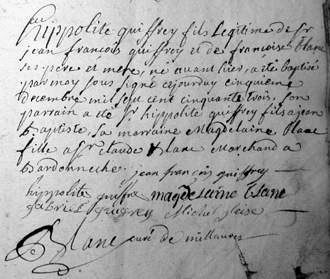 hippolite quiffrey fils Legitime de Sr
jean francois quiffrey et de francoise Blanc
ses pere et mere, né avant hier, a eté baptisé
par moy sous signé ajourduy cinquieme
decembre mil sept cent cinquante trois, son
parrain a eté Sr hippolite quiffrey fils a jean
Baptiste, sa marraine Magdelaine Blanc
fille a Sr Claude Blanc Marchand a
Bardonneche. jean françois quiffrey
hippolite quiffre magdeleine Blanc
Gabriel
Blanc curé de millaures